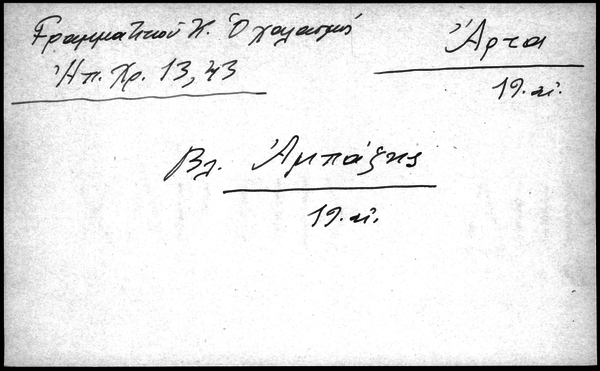 Γραμματικού Κ. Ὁ χαλασμός
Ἠπ. Χρ. 13, 43
Ἄρτα
19. αἰ.
Βλ. Ἀμπάζης
19. αἰ.